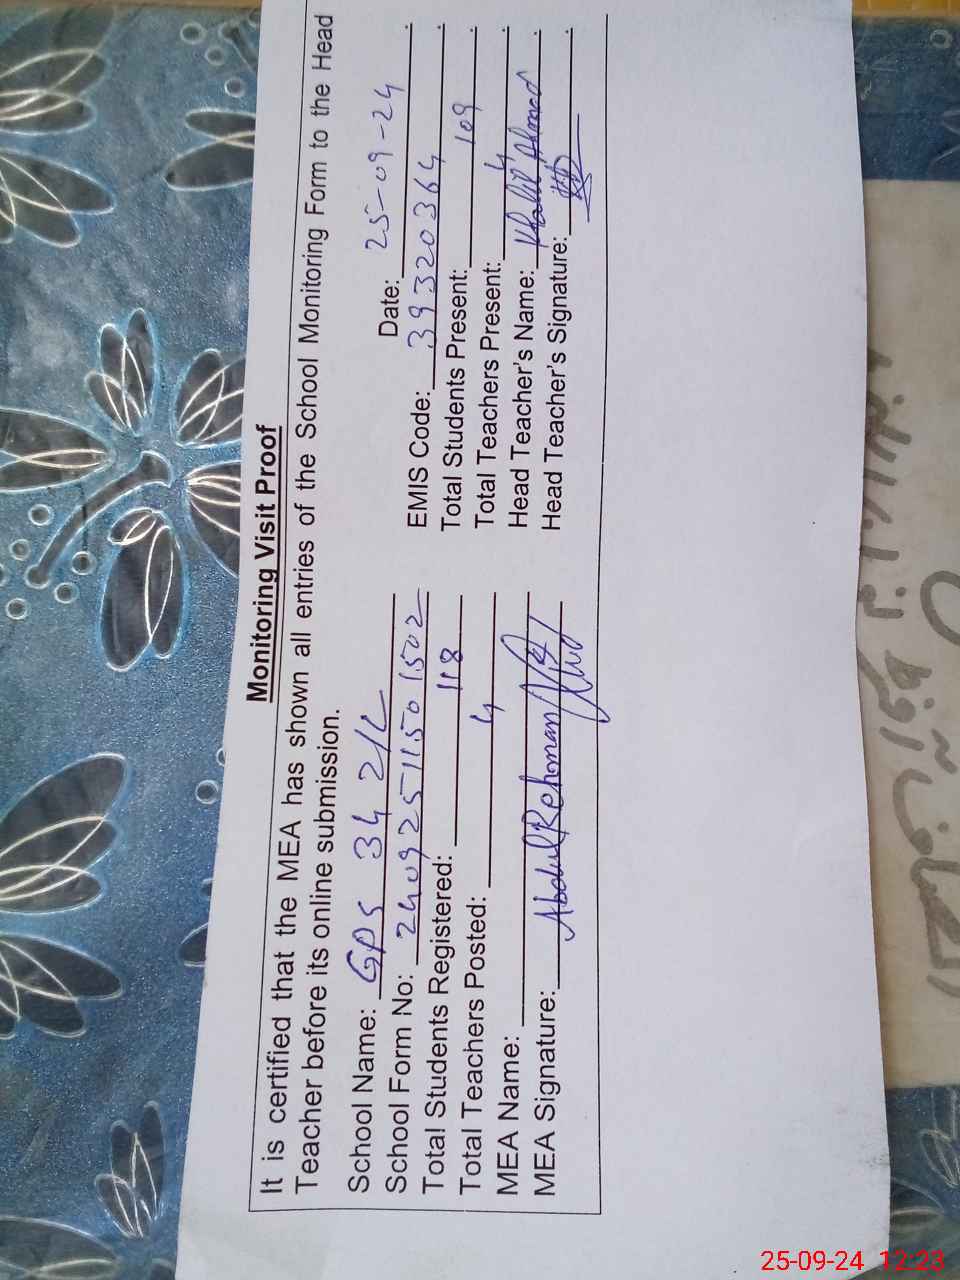 Monitoring Visit Proof
It is certified that the MEA has shown all entries of the School Monitoring Form to the Head
Teacher before its online submission.
School Name: GPS 34 2/L Date: 25-09-24
School Form No: 24092511501502 EMIS Code: 39320364
Total Students Registered: 118 Total Students Present: 109
Total Teachers Posted: 4 Total Teachers Present: 4
MEA Name: Abdul Rehman Head Teacher's Name: Khalil Ahmed
MEA Signature: Head Teacher's Signature:
25-09-24 12:23